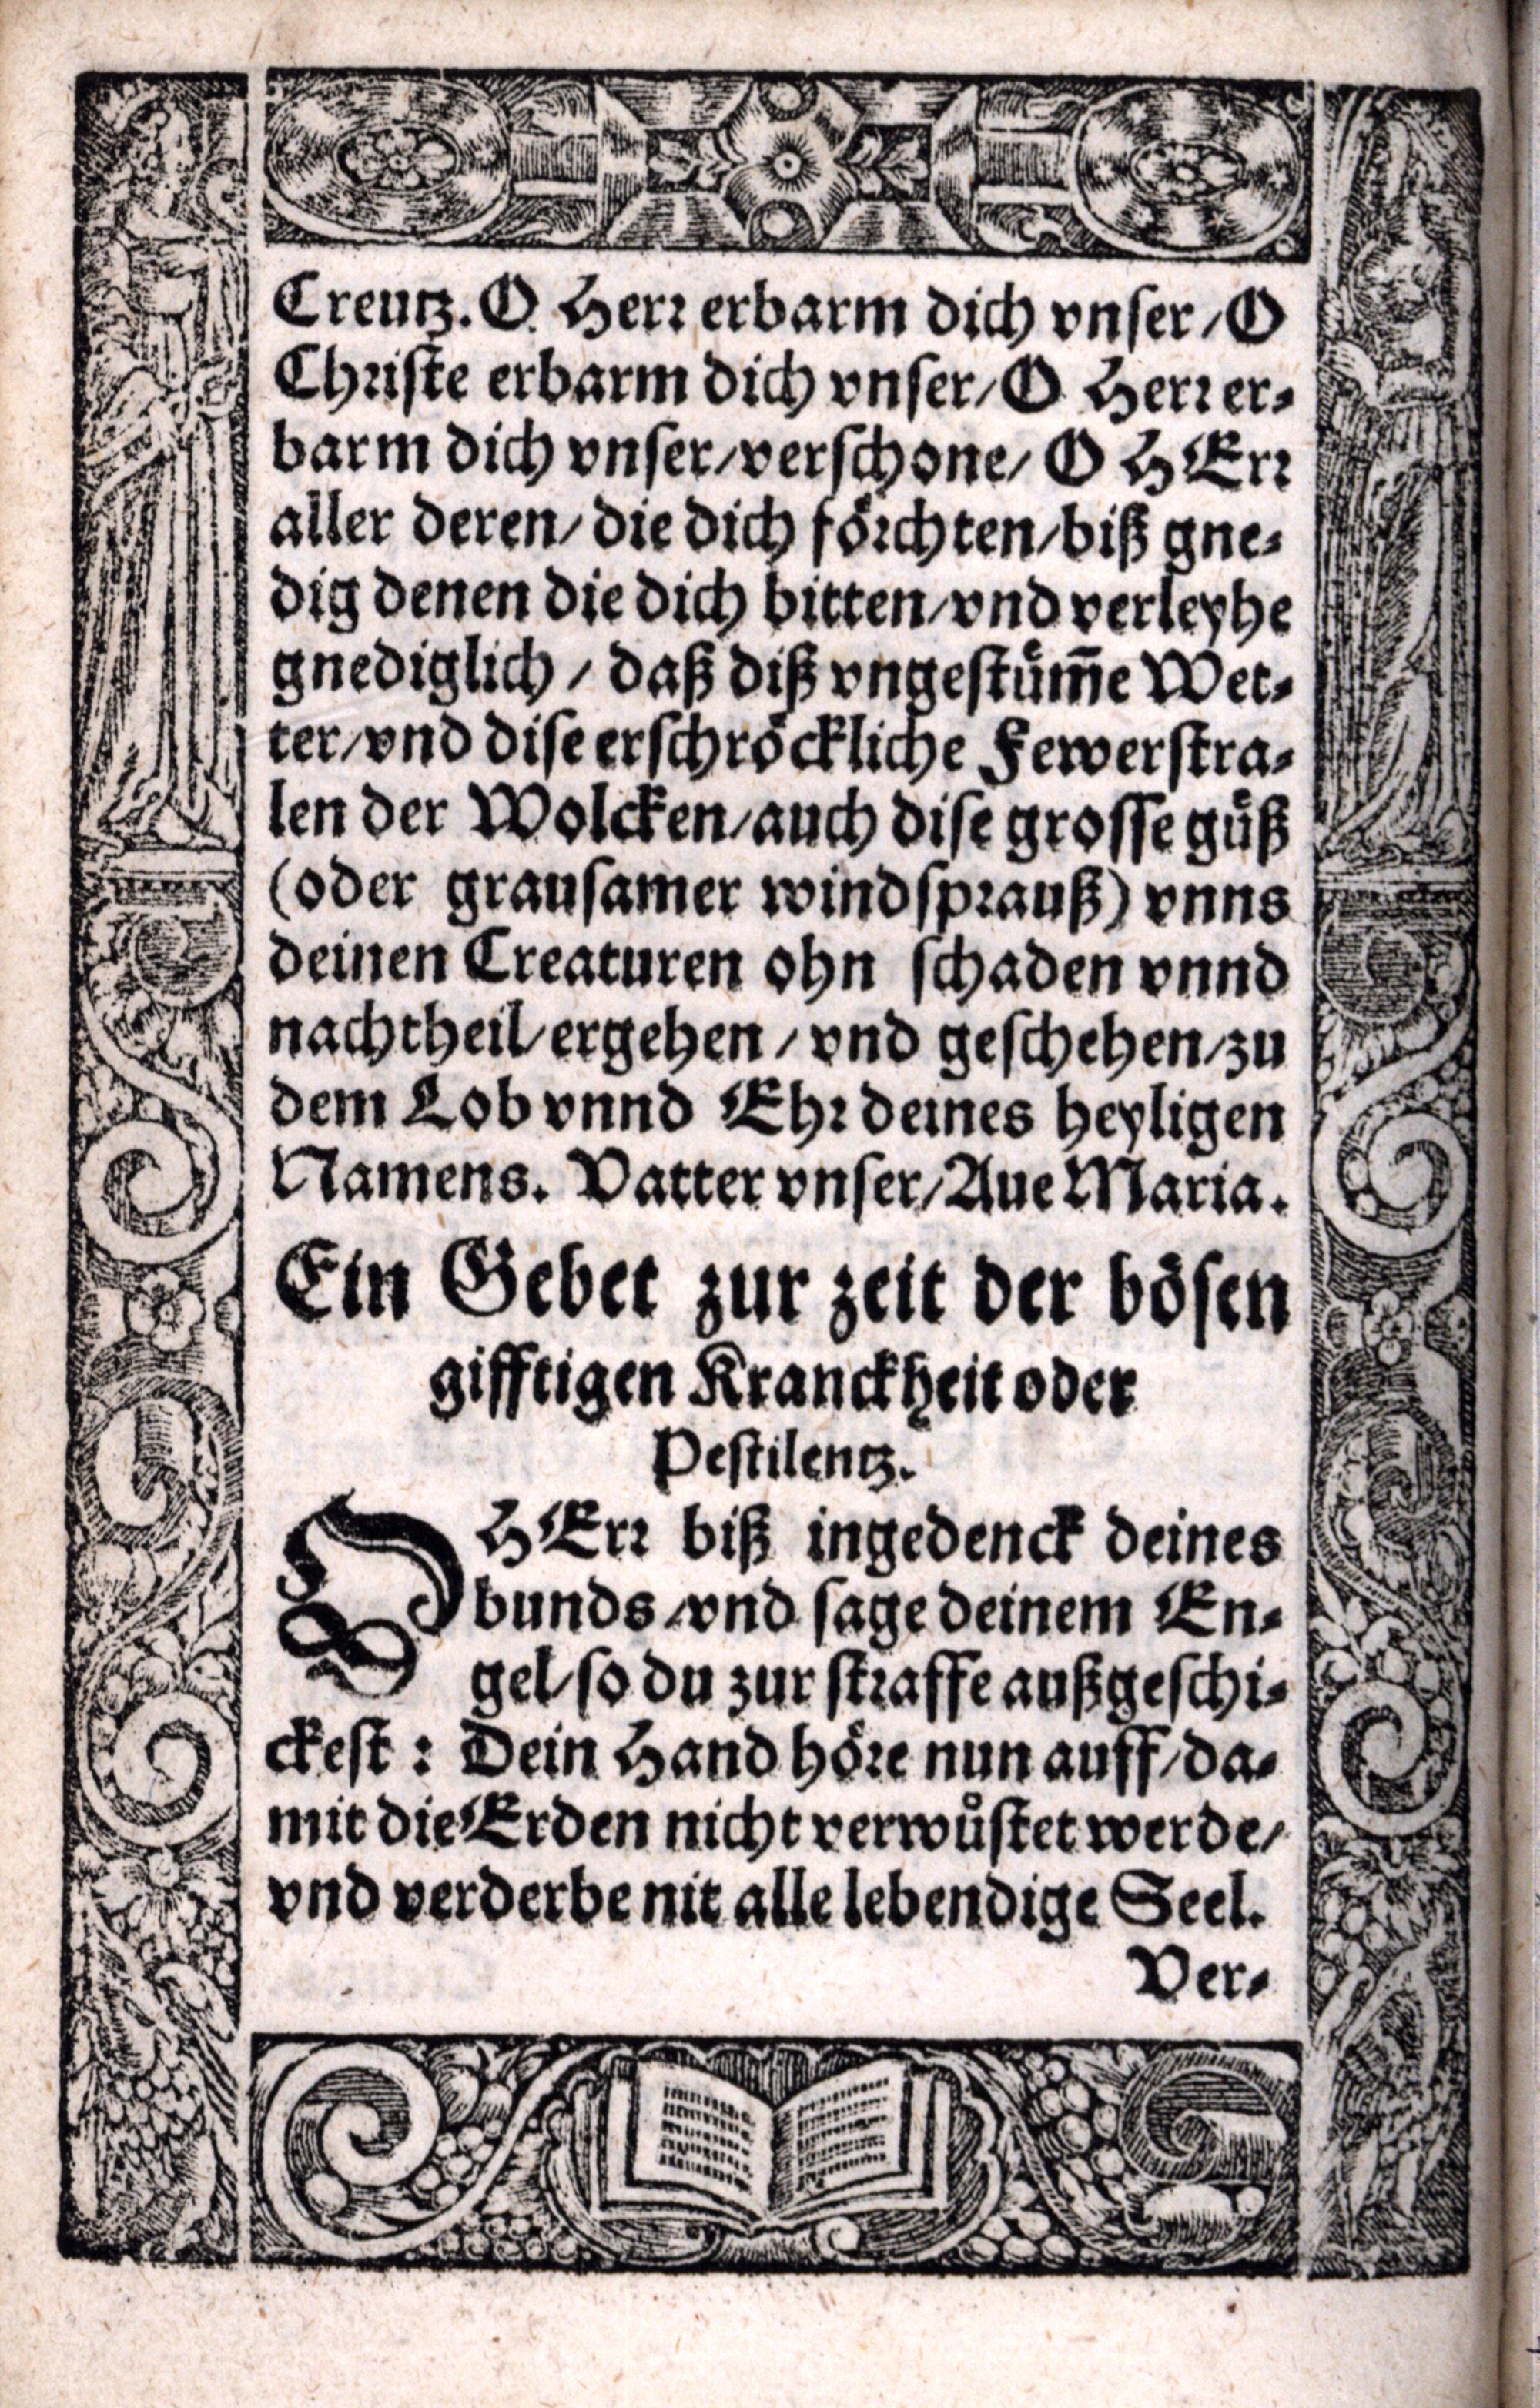 Creutz. O Herr erbarm dich vnser / O
Christe erbarm dich vnser / O Herr er-
barm dich vnser / verschone / O HErr
aller deren / die dich förchten / biß gne-
dig denen die dich bitten / vnd verleyhe
gnediglich / daß diß vngestüm̃e Wet-
ter / vnd dise erschröckliche Fewerstra-
len der Wolcken / auch dise grosse güß
(oder grausamer windsprauß) vnns
deinen Creaturen ohn schaden vnnd
nachtheil / ergehen / vnd geschehen / zu
dem Lob vnnd Ehr deines heyligen
Namens. Vatter vnser / Aue Maria.
Ein Gebet zur zeit der bösen
gifftigen Kranckheit oder
Pestilentz.
O HErr biß ingedenck deines
bunds / vnd sage deinem En-
gel / so du zur straffe außgeschi-
ckest : Dein Hand höre nun auff / da-
mit die Erden nicht verwůstet werde /
vnd verderbe nit alle lebendige Seel.
Ver-